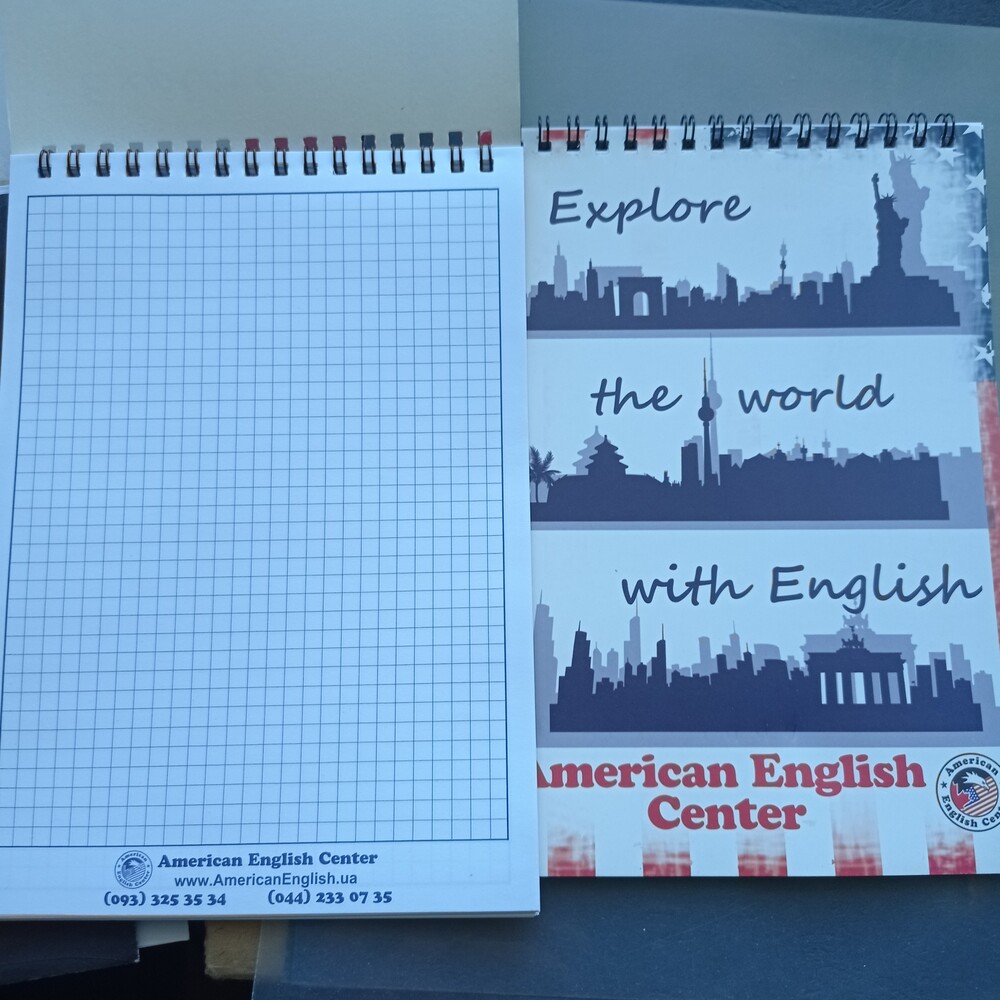 American English Center
www.AmericanEnglish.ua
(093) 325 35 34 (044) 233 07 35
Explore
the world
with English
American English
Center
American
English